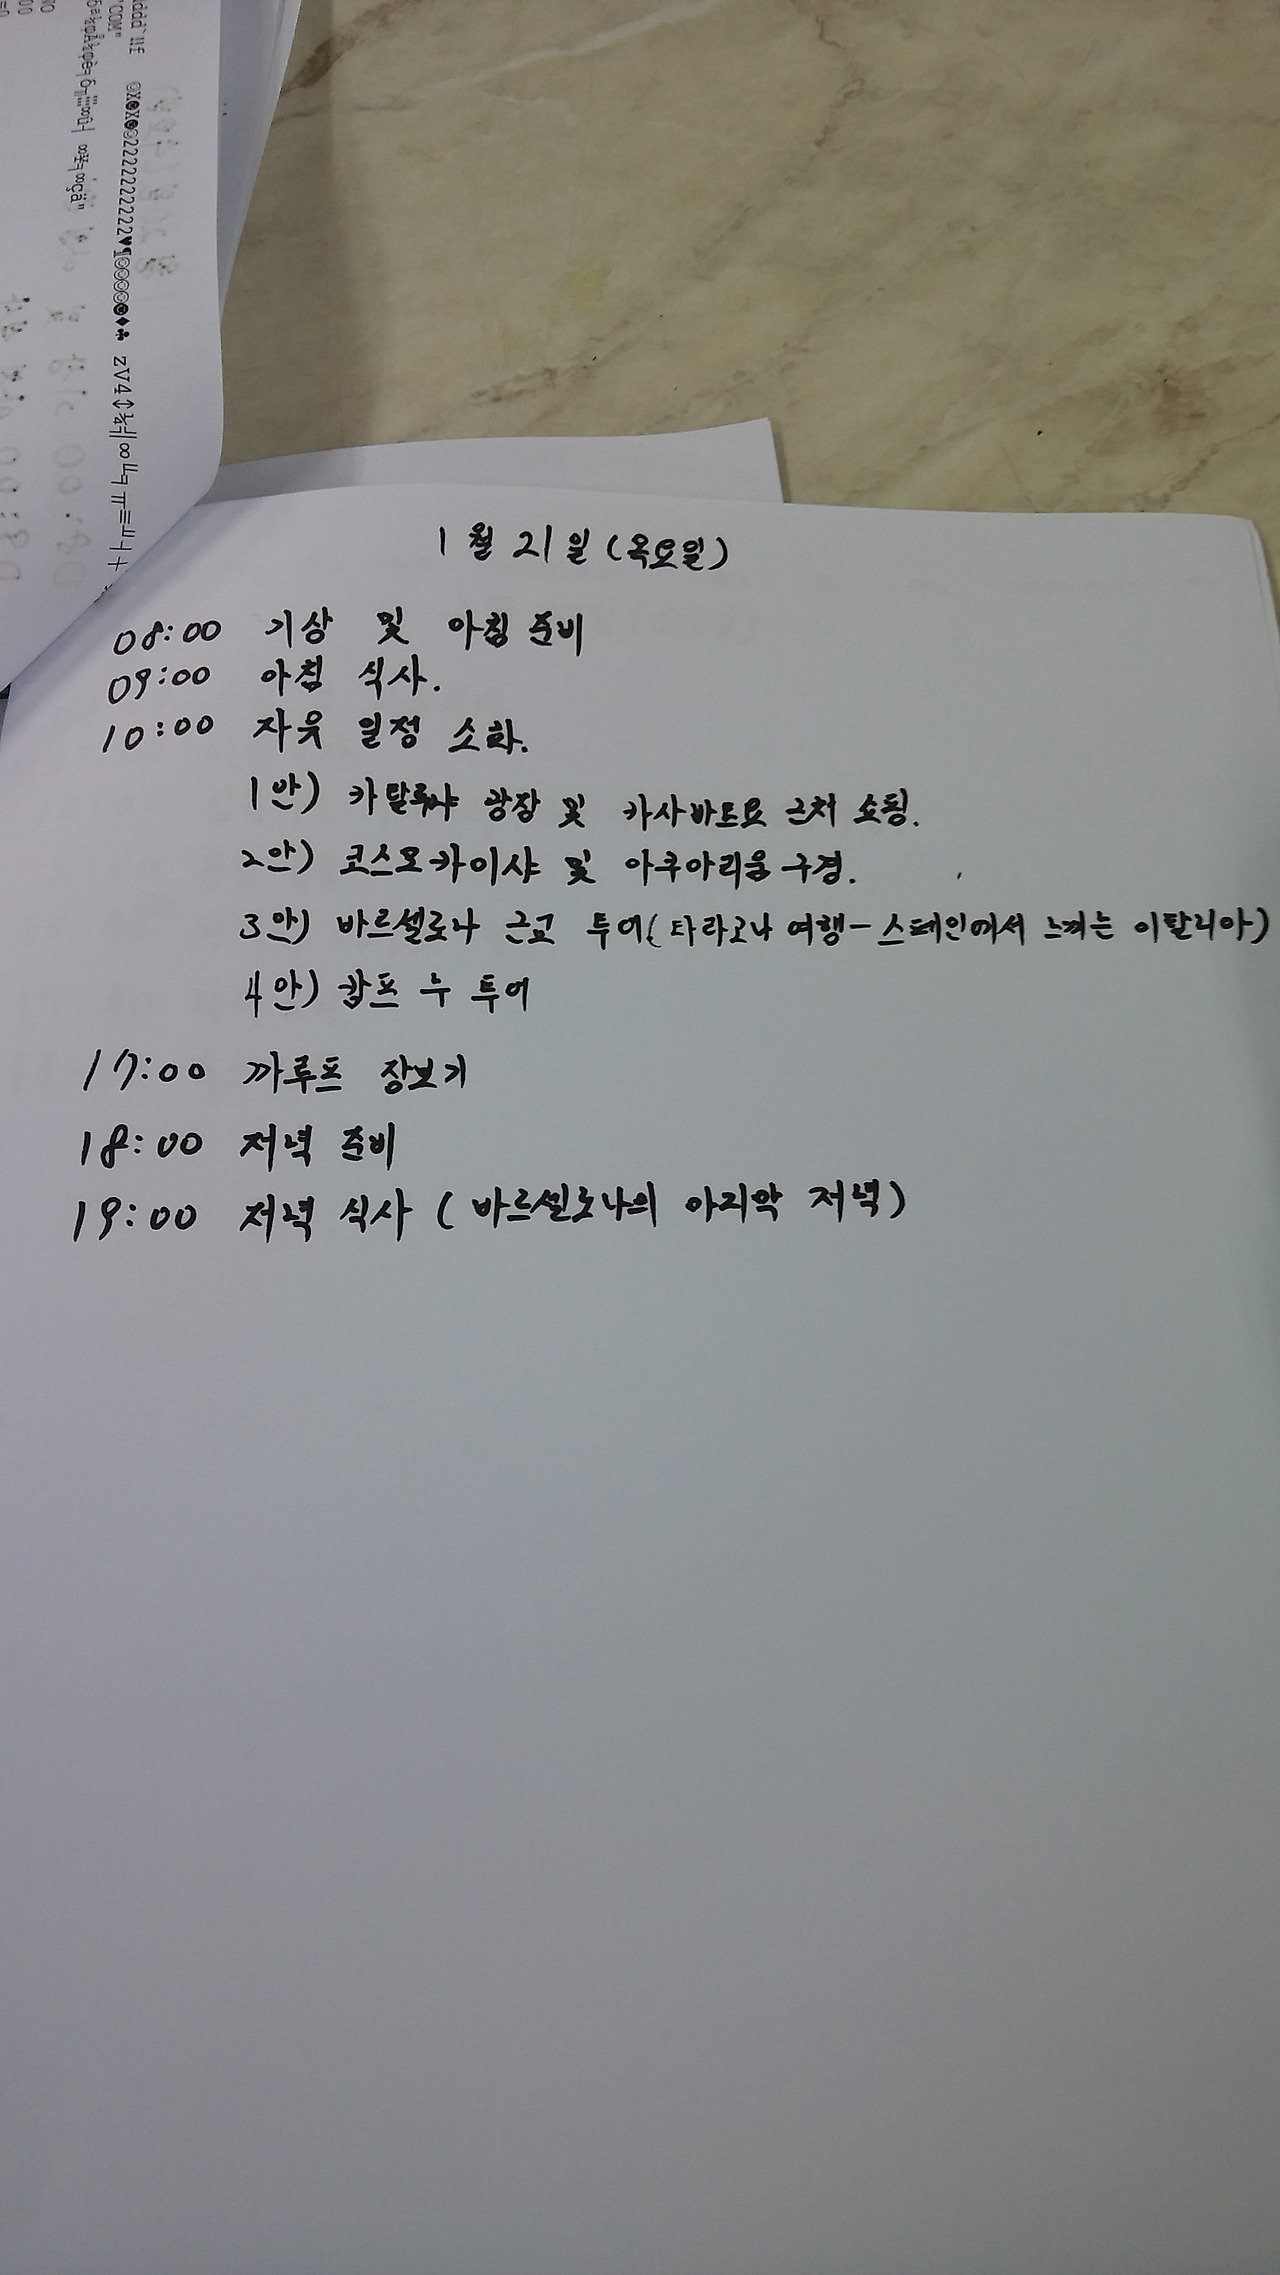 1월 21일 (목요일)
08:00 기상 및 아침 준비
09:00 아침 식사.
10:00 자유 일정 소화.
1안) 카탈루냐 광장 및 카사바트요 근처 쇼핑.
2안) 코스모카이샤 및 아쿠아리움 구경.
3안) 바르셀로나 근교 투어(타라고나 여행-스페인에서 느끼는 이탈리아)
4안) 캄프 누 투어
17:00 까루프 장보기
18:00 저녁 준비
19:00 저녁 식사 (바르셀로나의 마지막 저녁)